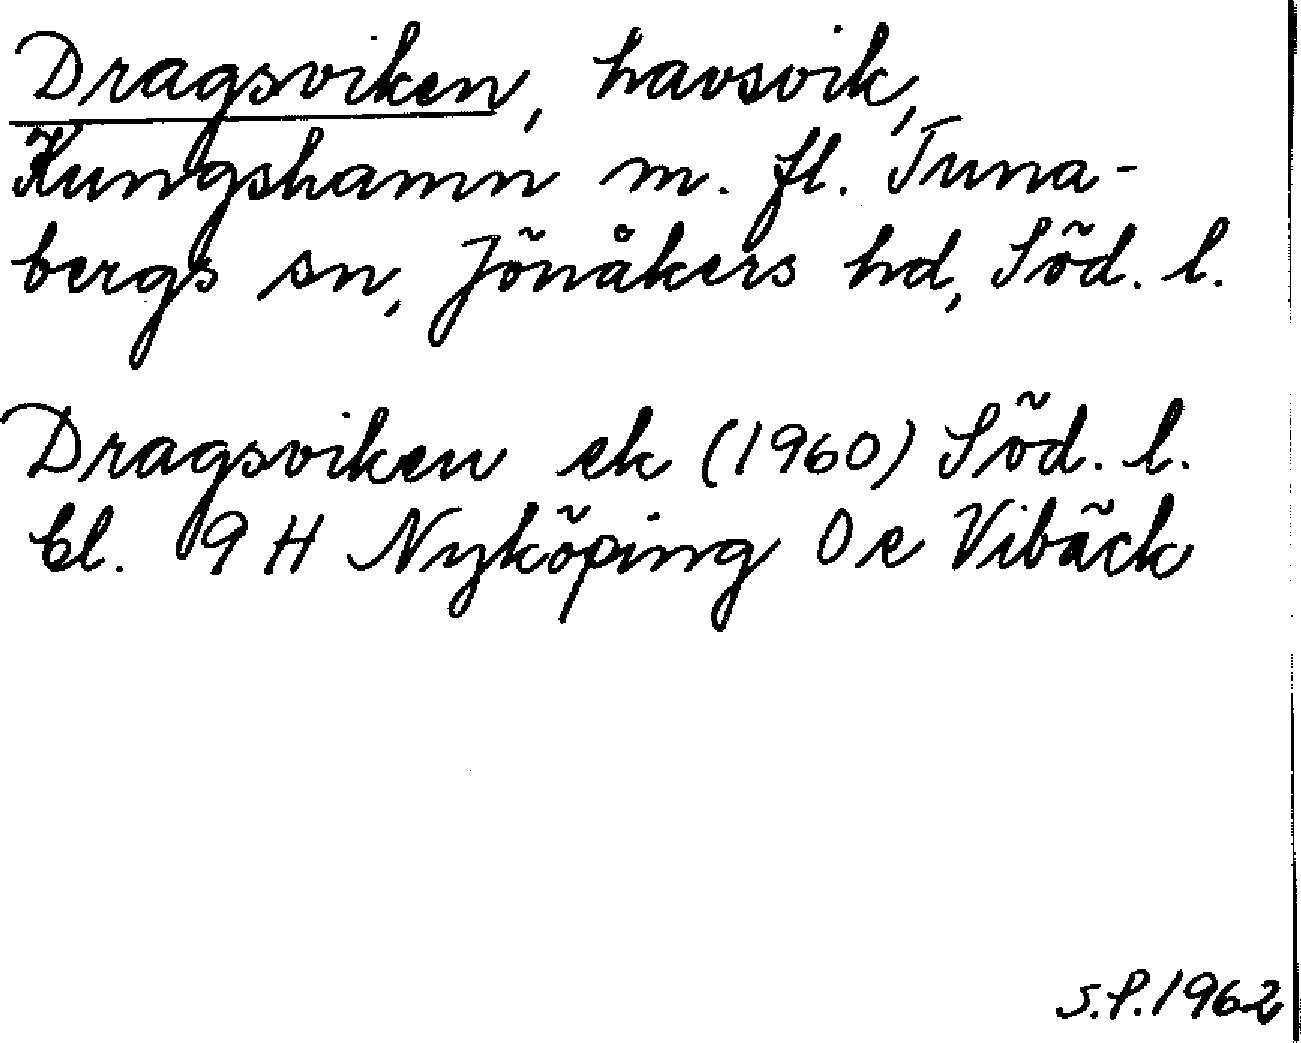 Dragsviken, havsvik,
Kungshamn m. fl. Tuna-
bergs sn, Jönåkers hd, Söd. l.
Dragsviken ek (1960) Söd. l.
bl. 9 H Nyköping 0 e Vibäck
S.P. 1962